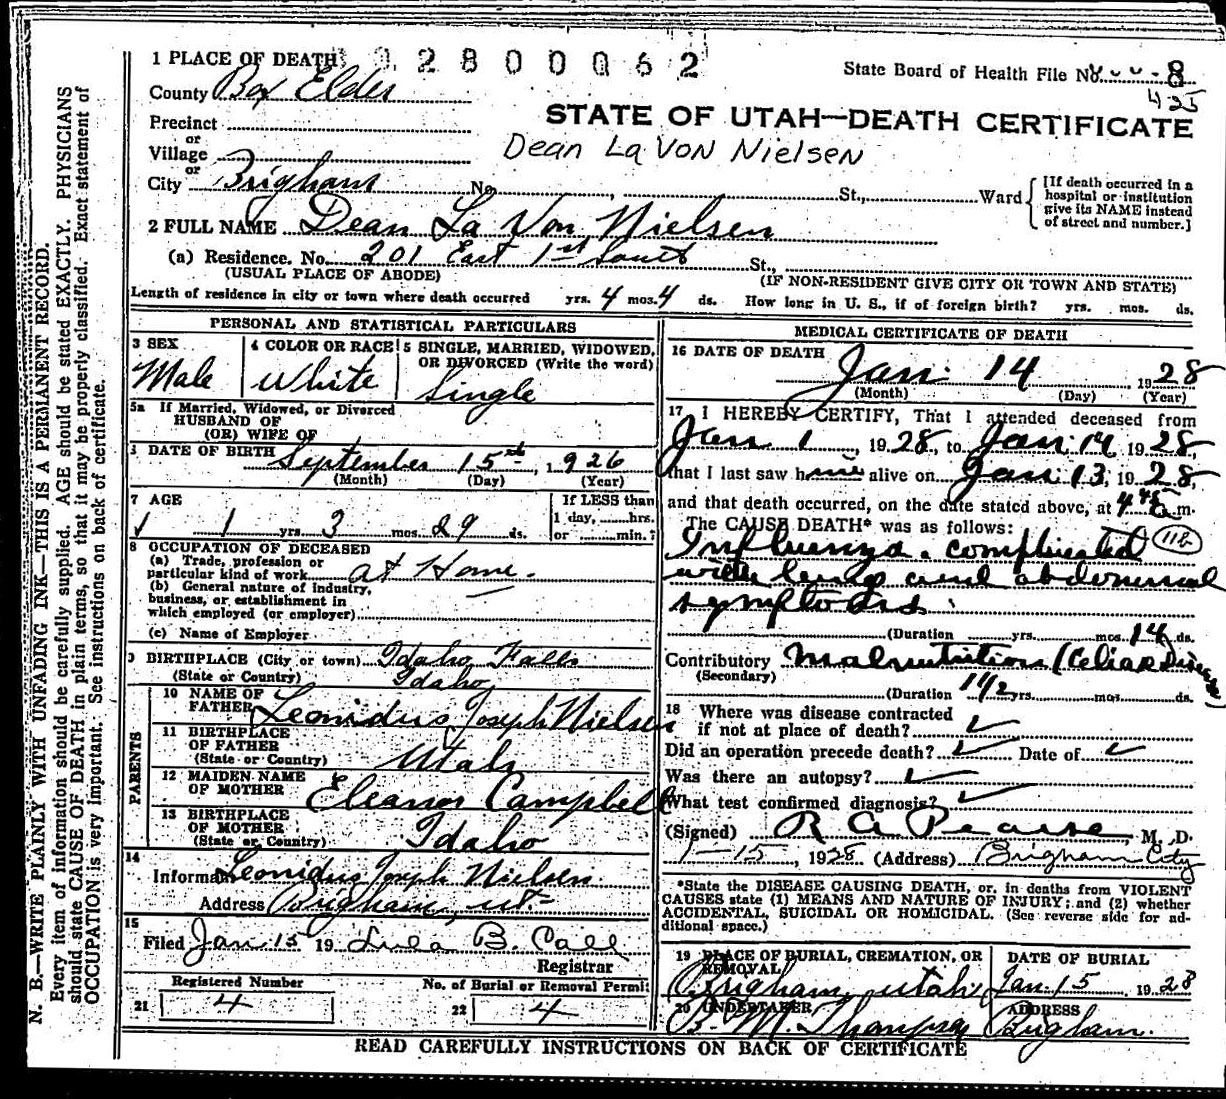 1 PLACE OF DEATH 2800062
State Board of Health File No. 8
425
County Box Elder
STATE OF UTAH—DEATH CERTIFICATE
Precinct
or
Village
Dean La Von Nielsen
or
City Brigham No. St., Ward
[If death occurred in a
hospital or institution
give its NAME instead
of street and number.]
2 FULL NAME Dean La Von Nielsen
(a) Residence. No. 201 East 1st South St.,
(USUAL PLACE OF ABODE) (IF NON-RESIDENT GIVE CITY OR TOWN AND STATE)
Length of residence in city or town where death occurred yrs. 4 mos. 4 ds. How long in U. S., if of foreign birth? yrs. mos. ds.
PERSONAL AND STATISTICAL PARTICULARS
3 SEX Male
4 COLOR OR RACE White
5 SINGLE, MARRIED, WIDOWED,
OR DIVORCED (Write the word)
Single
5a If Married, Widowed, or Divorced
HUSBAND OF
(OR) WIFE OF
DATE OF BIRTH September 15th, 1926
(Month) (Day) (Year)
7 AGE
1 yrs. 3 mos. 29 ds.
If LESS than
1 day, hrs.
or min.?
8 OCCUPATION OF DECEASED
(a) Trade, profession or
particular kind of work at Home.
(b) General nature of industry,
business, or establishment in
which employed (or employer)
(c) Name of Employer
9 BIRTHPLACE (City or town) Idaho Falls
(State or Country) Idaho
PARENTS
10 NAME OF
FATHER Leonidus Joseph Nielsen
11 BIRTHPLACE
OF FATHER
(State or Country) Utah
12 MAIDEN NAME
OF MOTHER Eleanor Campbell
13 BIRTHPLACE
OF MOTHER
(State or Country) Idaho
14
Informant Leonidus Joseph Nielsen
Address Brigham, Ut-
15
Filed Jan 15 19 Lula B. Call
Registrar
Registered Number
21 4
No. of Burial or Removal Permit
22 4
MEDICAL CERTIFICATE OF DEATH
16 DATE OF DEATH
Jan. 14 1928
(Month) (Day) (Year)
17 I HEREBY CERTIFY, That I attended deceased from
Jan 1, 1928, to Jan. 14 1928,
that I last saw him alive on Jan 13, 1928,
and that death occurred, on the date stated above, at 4 m.
The CAUSE DEATH* was as follows:
Influenza. complicated 11b
with lung and abdominal
symptoms.
(Duration yrs. mos. 14 ds.
Contributory Malnutrition (Celiac Disease)
(Secondary)
(Duration 1 1/2 yrs. mos. ds.
18 Where was disease contracted
if not at place of death?
Did an operation precede death? Date of
Was there an autopsy?
What test confirmed diagnosis?
(Signed) R A Pearse, M. D.
1-15, 1928 (Address) Brigham City
*State the DISEASE CAUSING DEATH, or, in deaths from VIOLENT
CAUSES state (1) MEANS AND NATURE OF INJURY; and (2) whether
ACCIDENTAL, SUICIDAL OR HOMICIDAL. (See reverse side for ad-
ditional space.)
19 PLACE OF BURIAL, CREMATION, OR
REMOVAL
Brigham, Utah
DATE OF BURIAL
Jan. 15 1928
20 UNDERTAKER
B. M. Thompson
ADDRESS
Brigham.
READ CAREFULLY INSTRUCTIONS ON BACK OF CERTIFICATE
N. B.—WRITE PLAINLY WITH UNFADING INK—THIS IS A PERMANENT RECORD.
Every item of information should be carefully supplied. AGE should be stated EXACTLY. PHYSICIANS
should state CAUSE OF DEATH in plain terms, so that it may be properly classified. Exact statement of
OCCUPATION is very important. See instructions on back of certificate.